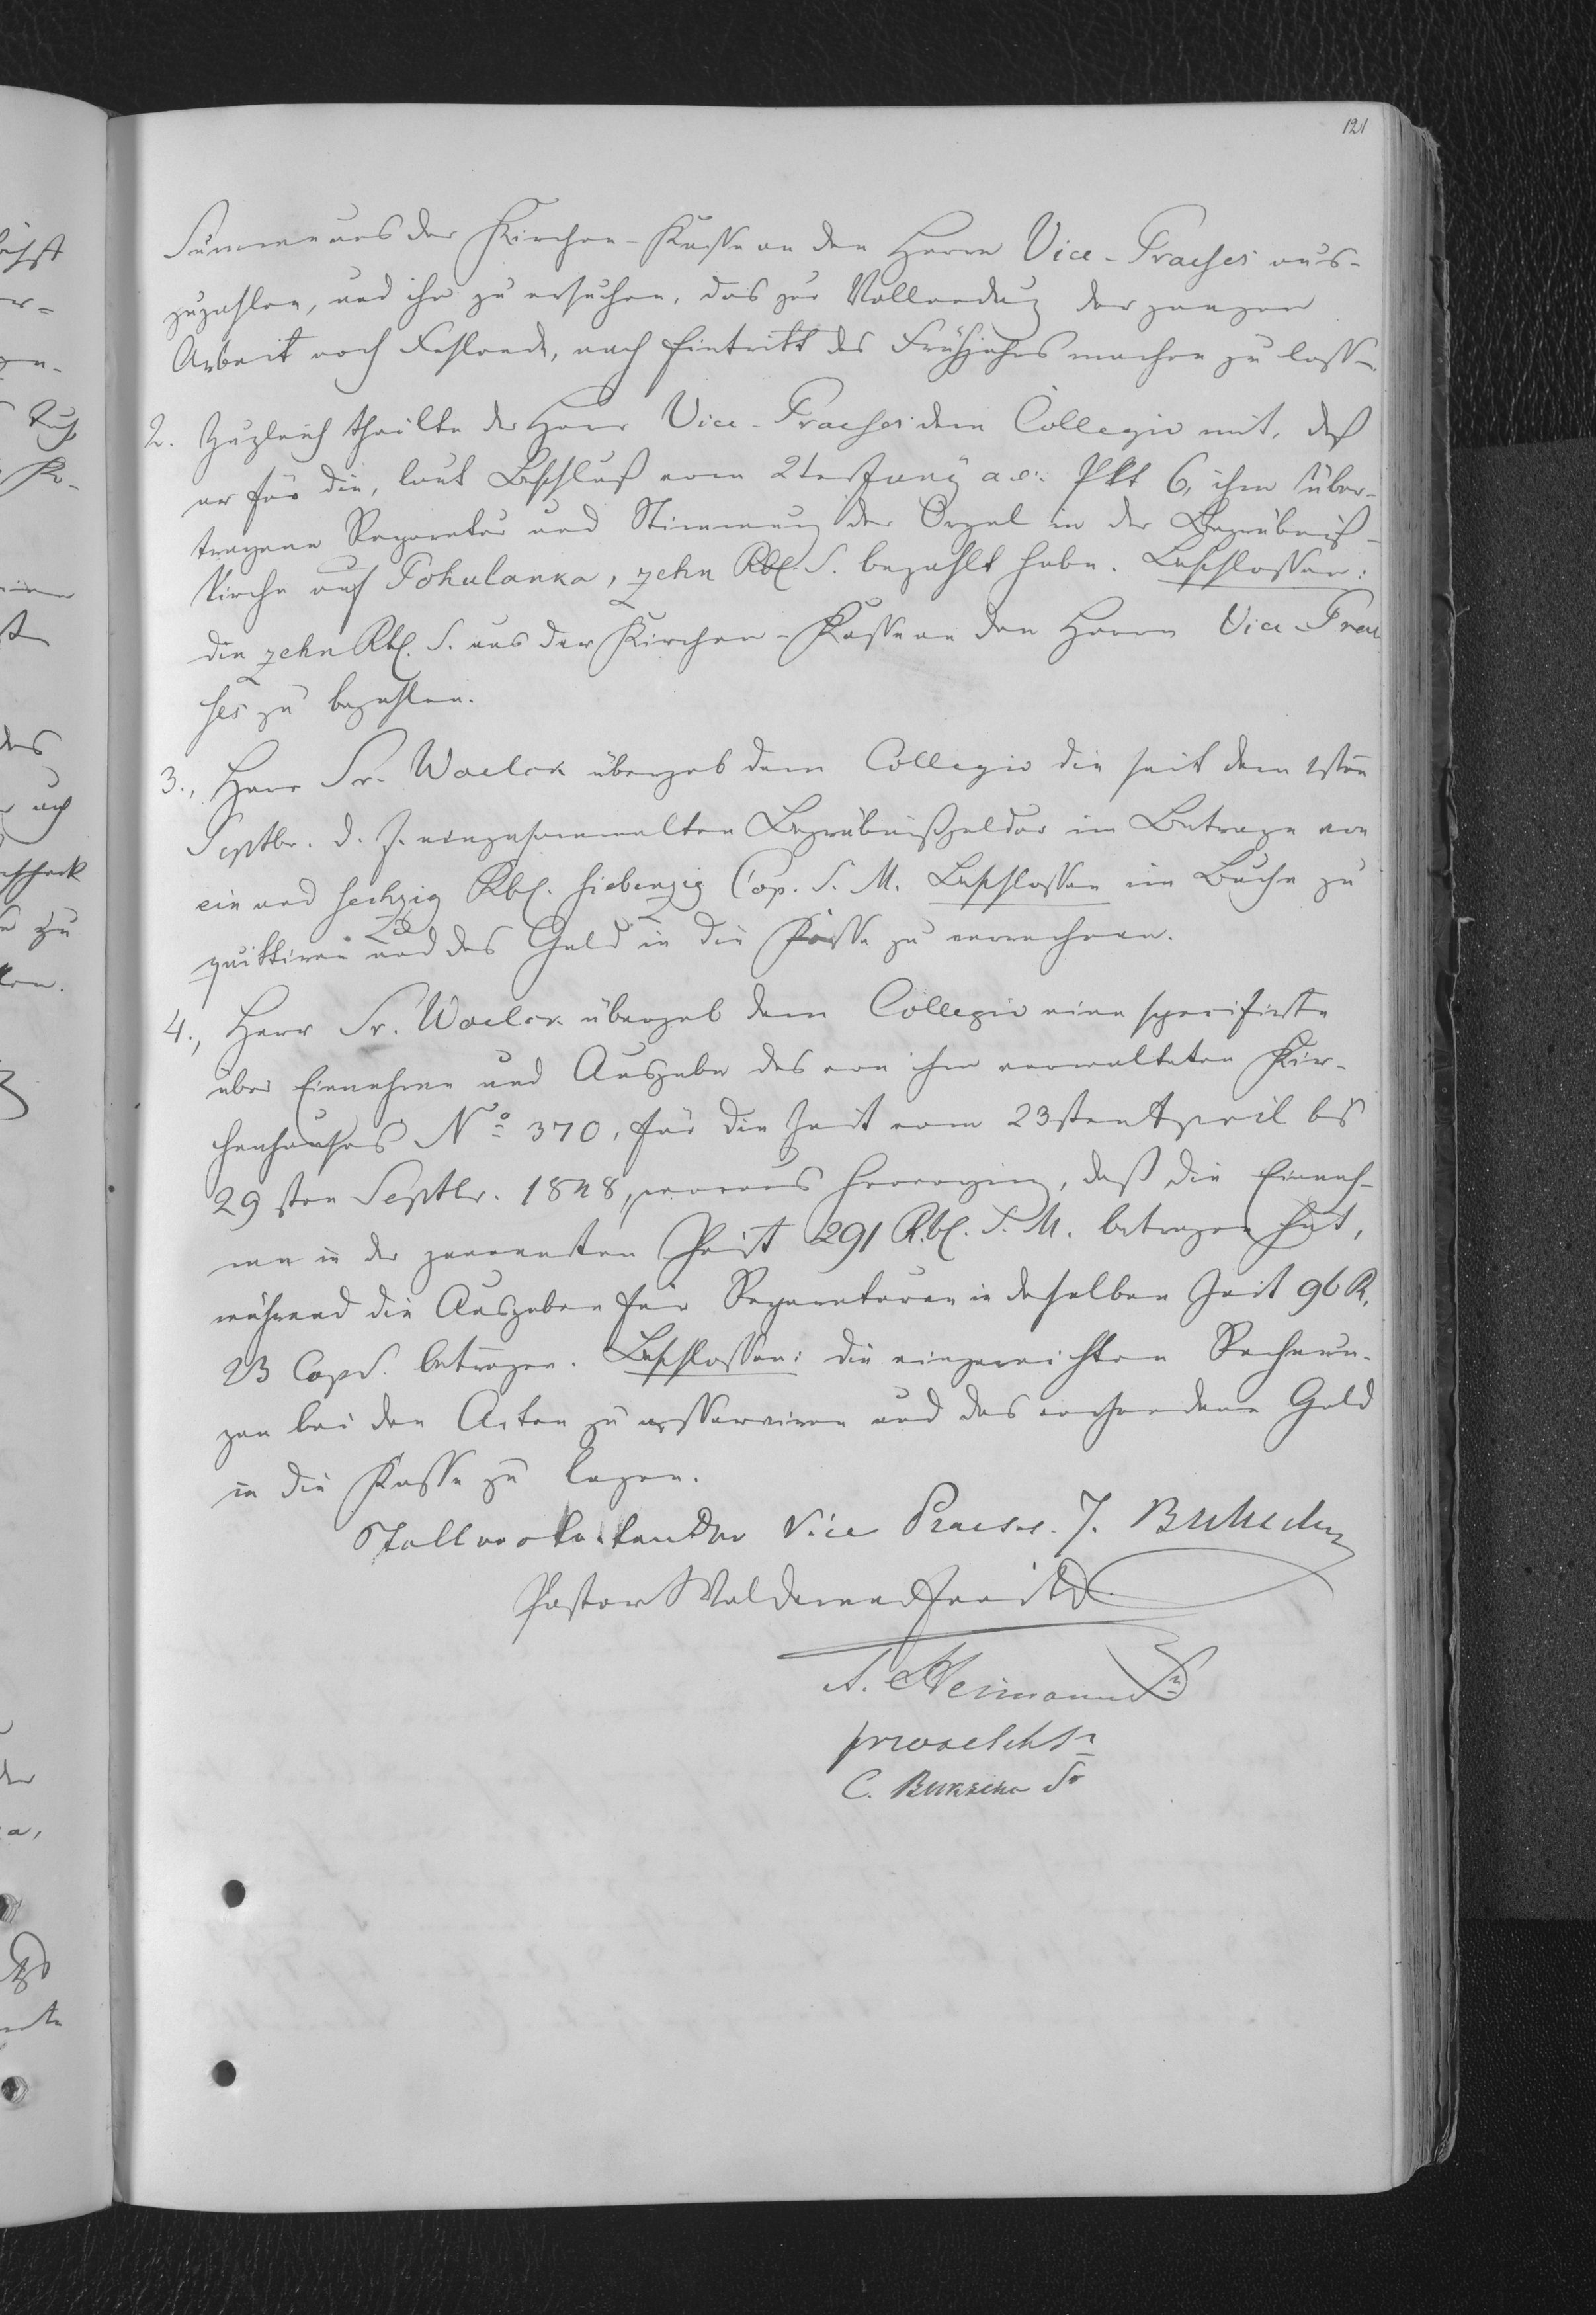 121
Summe aus der Kirchen-Kasse an den Herrn Vice-Praeses aus-
zuzahlen, und ihn zu ersuchen, das zur Vollendung der ganzen
Arbeit noch Fehlende, nach Eintritt des Frühjahrs machen zu lassen.
2. Zugleich theilte der Herr Vice-Praeses dem Collegio mit, daß
er für die, laut Beschluß vom 2ten Juny a. c. Pkt 6, ihm über-
tragene Reparatur und Stimmung der Orgel in der Begräbniß-
Kirche auf Pohulanka, zehn Rbl. S. bezahlt habe. Beschlossen:
die zehn Rbl. S. aus der Kirchen-Kasse an den Herrn Vice-Prae
ses zu bezahlen.
3., Herr Sr. Waelck übergab dem Collegio die seit dem 1sten
Septbr. d. J. eingesammelten Begräbnißgelder im Betrage von
ein und sechzig Rbl. siebenzig Cop. S. M. Beschlossen im Buche zu
quittiren und das Geld in die Kasse zu verrechnen.
4., Herr Sr. Waelck übergab dem Collegio eine specificirte
über Einnahme und Ausgabe des von ihm verwalteten Kir-
chenhauses No 370, für die Zeit vom 23sten April bis
29sten Septbr. 1848, woraus hervorging, daß die Einnah-
me in der genannten Zeit 291 Rbl. S. M. betragen hat,
während die Ausgaben für Reparaturen in derselben Zeit 96 R.
23 Cop. S. betrugen. Beschlossen: die eingereichten Rechnun-
gen bei den Acten zu asserviren und das vorhandene Geld
in die Kasse zu legen.
Stellvertretender Vice Praeses. J.
Pastor Woldemar
A. Heimann Sr
Waelck Sr
C. Sr